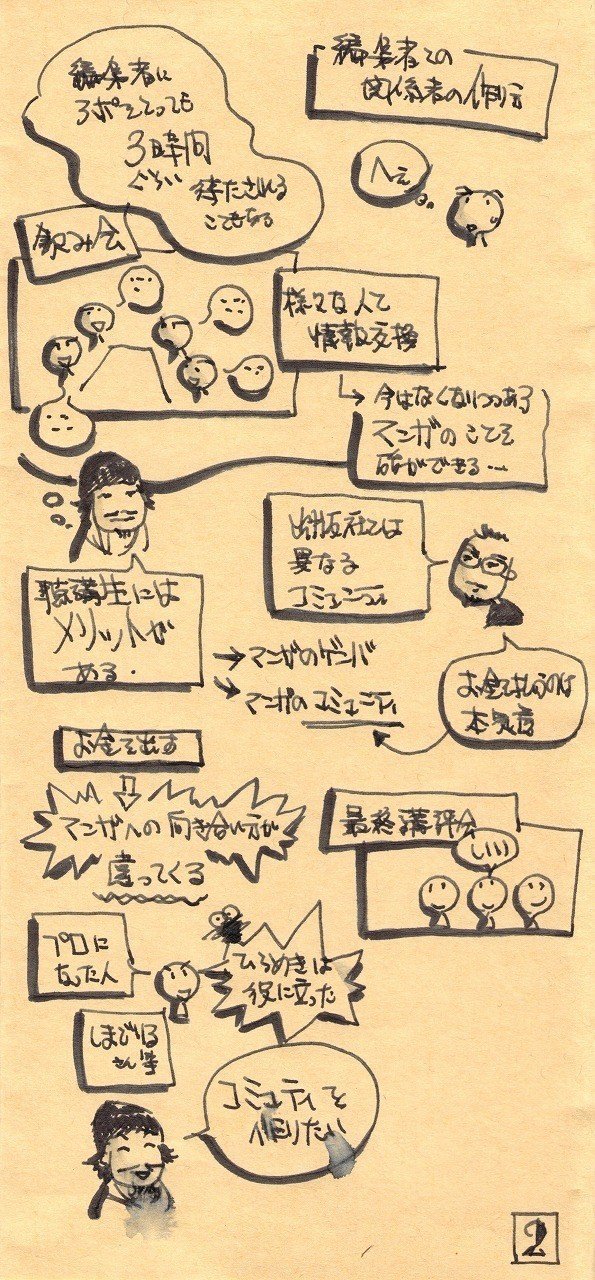 編集者との
関係者の作り方
編集者に
アポをとっても
3時間
ぐらい 待たされる
こともある
へぇ
飲み会
様々な人で
情報交換
今はなくなりつつある
マンガのことを
話ができる…
聴講生には
メリットが
ある.
出版社とは
異なる
→マンガのゲンバ
→マンガのコミュニティ
お金を払うのは
本気度
お金を出す
マンガへの向きあい方が
違ってくる
最終講評会
しいい
プロに
なった人
ひらめきは
役に立った
しまどりる
さん
コミュティを
作りたい
2